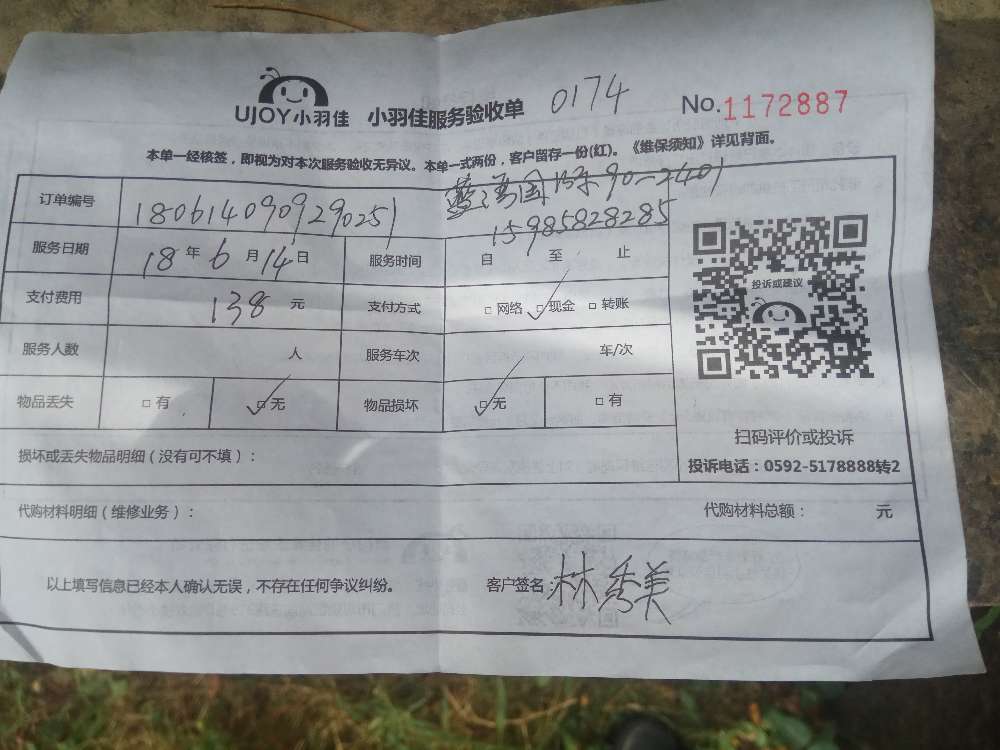 UJOY小羽佳 小羽佳服务验收单 0174 No.1172887
本单一经核签，即视为对本次服务验收无异议。本单一式两份，客户留存一份(红)。《维保须知》详见背面。
订单编号 1806140909290251 国际90-2401
15985828285
服务日期 18年6月14日 服务时间 自 至 止
支付费用 138元 支付方式 □网络 ☑现金 □转账
服务人数 人 服务车次 车/次
物品丢失 □有 ☑无 物品损坏 ☑无 □有
投诉或建议
扫码评价或投诉
投诉电话：0592-5178888转2
损坏或丢失物品明细（没有可不填）：
代购材料明细（维修业务）： 代购材料总额： 元
以上填写信息已经本人确认无误，不存在任何争议纠纷。 客户签名：林秀美